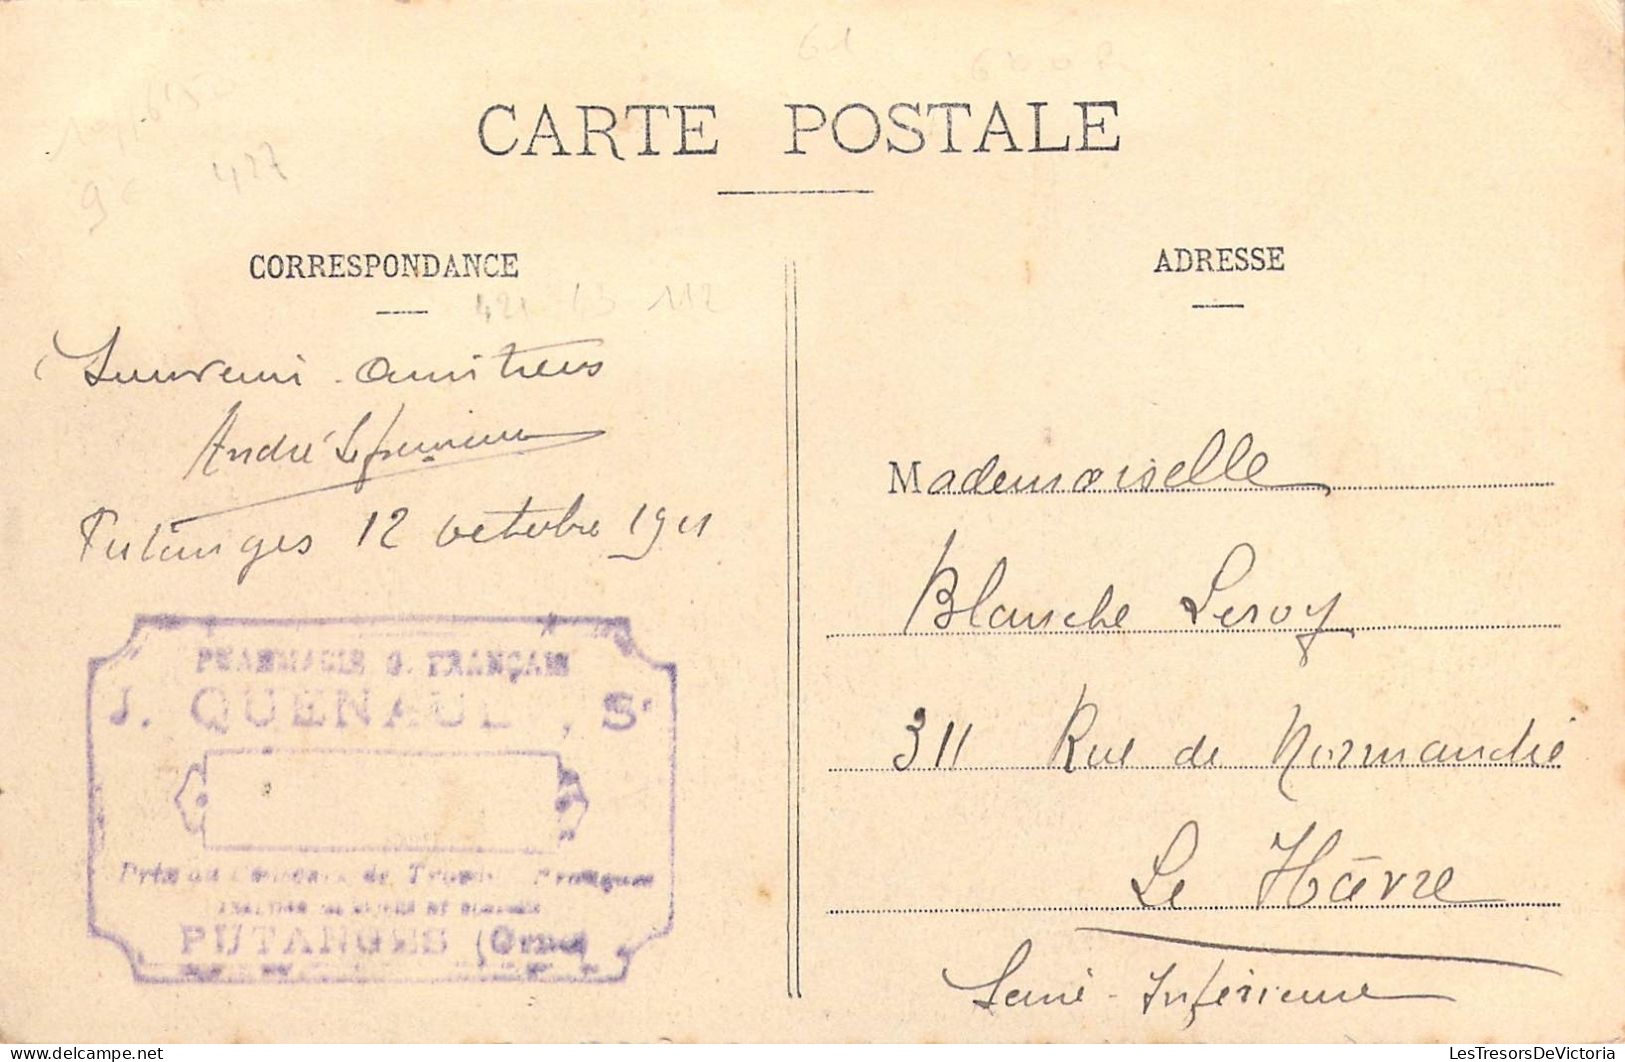 CARTE POSTALE
CORRESPONDANCE
Souvenir amitieus
André
Putanges 12 octobre 1911
PHARMACIE G. FRANÇAIS
J. QUENAUL , Sr
Prix au Concours de Travaux Pratiques
PUTANGES (Orne)
ADRESSE
Mademoiselle
Blanche Leroy
311 Rue de Normandie
Le Hâvre
Seine-Inférieure
427
9€
421 43 112
LesTresorsDeVictoria